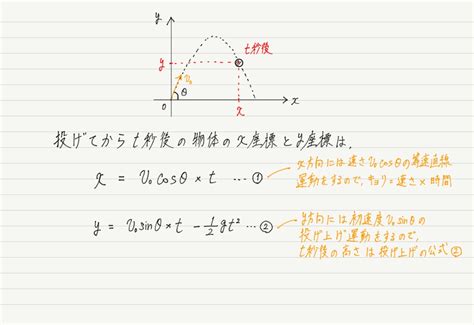 y
t秒後
y
v₀
θ
0
x
x
投げてからt秒後の物体のx座標とy座標は、
x = v₀cosθ × t …①
x方向には速さv₀cosθの等速直線
運動をするので、キョリ=速さ×時間
y = v₀sinθ×t - 1/2 gt² …②
y方向には初速度v₀sinθの
投げ上げ運動をするので、
t秒後の高さは投げ上げの公式②